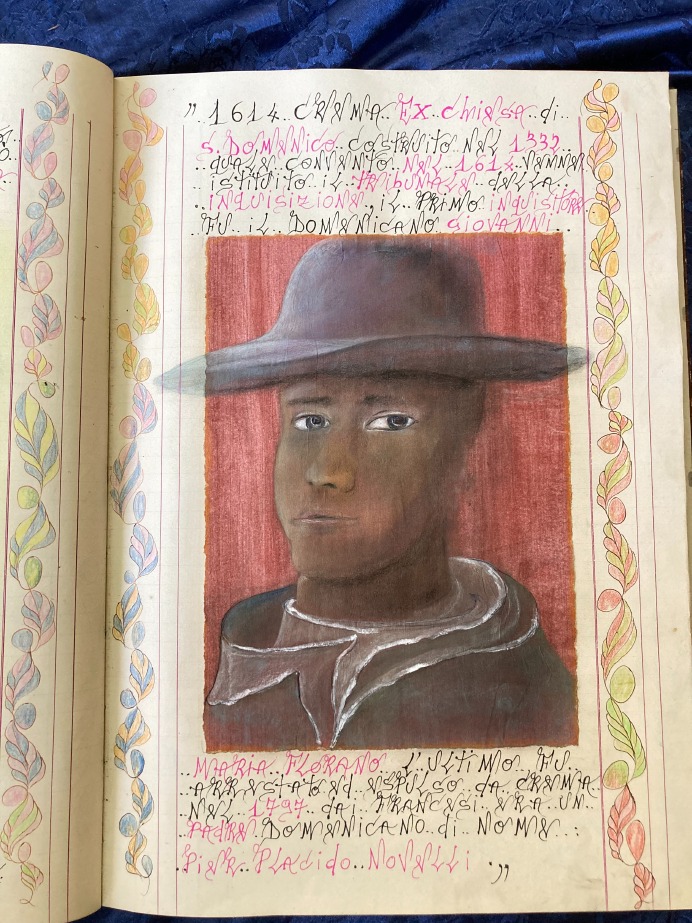 " 1614 CREMA.. EX chiesa di..
S. DOMENICO. COSTRUITO NEL 1332..
QUALE CONVENTO NEL 1614 VENNE.
ISTITUITO IL TRIBUNALE DELLA..
INQUISIZIONE., IL PRIMO INQUISITORE.
.. FU IL DOMENICANO GIOVANNI...
.. MARIA FLORANO L'ULTIMO FU.
.. ARRESTATO ed ESPULSO da CREMA..
.. NEL 1797 dai FRANCESI ERA UN
PADRE DOMENICANO.. di NOME.. :
PIER PLACIDO NOVELLI. "